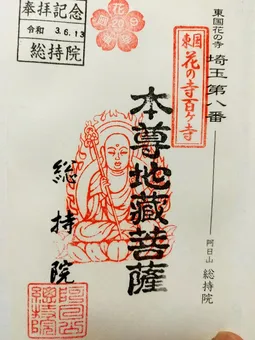 東国花の寺
埼玉第八番
阿日山 総持院
東国
花の寺百ヶ寺
本尊地蔵菩薩
総持院
奉拝記念
令和 3.6.13
総持院